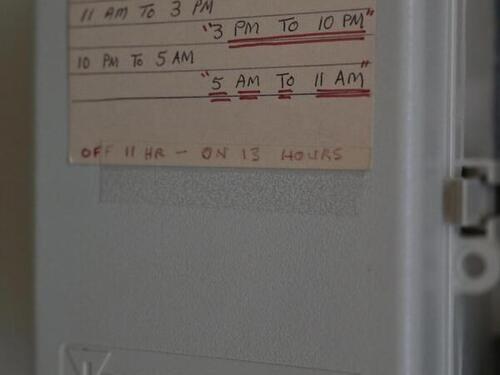 11 AM TO 3 PM
"3 PM TO 10 PM"
10 PM TO 5 AM
"5 AM TO 11 AM"
OFF 11 HR - ON 13 HOURS